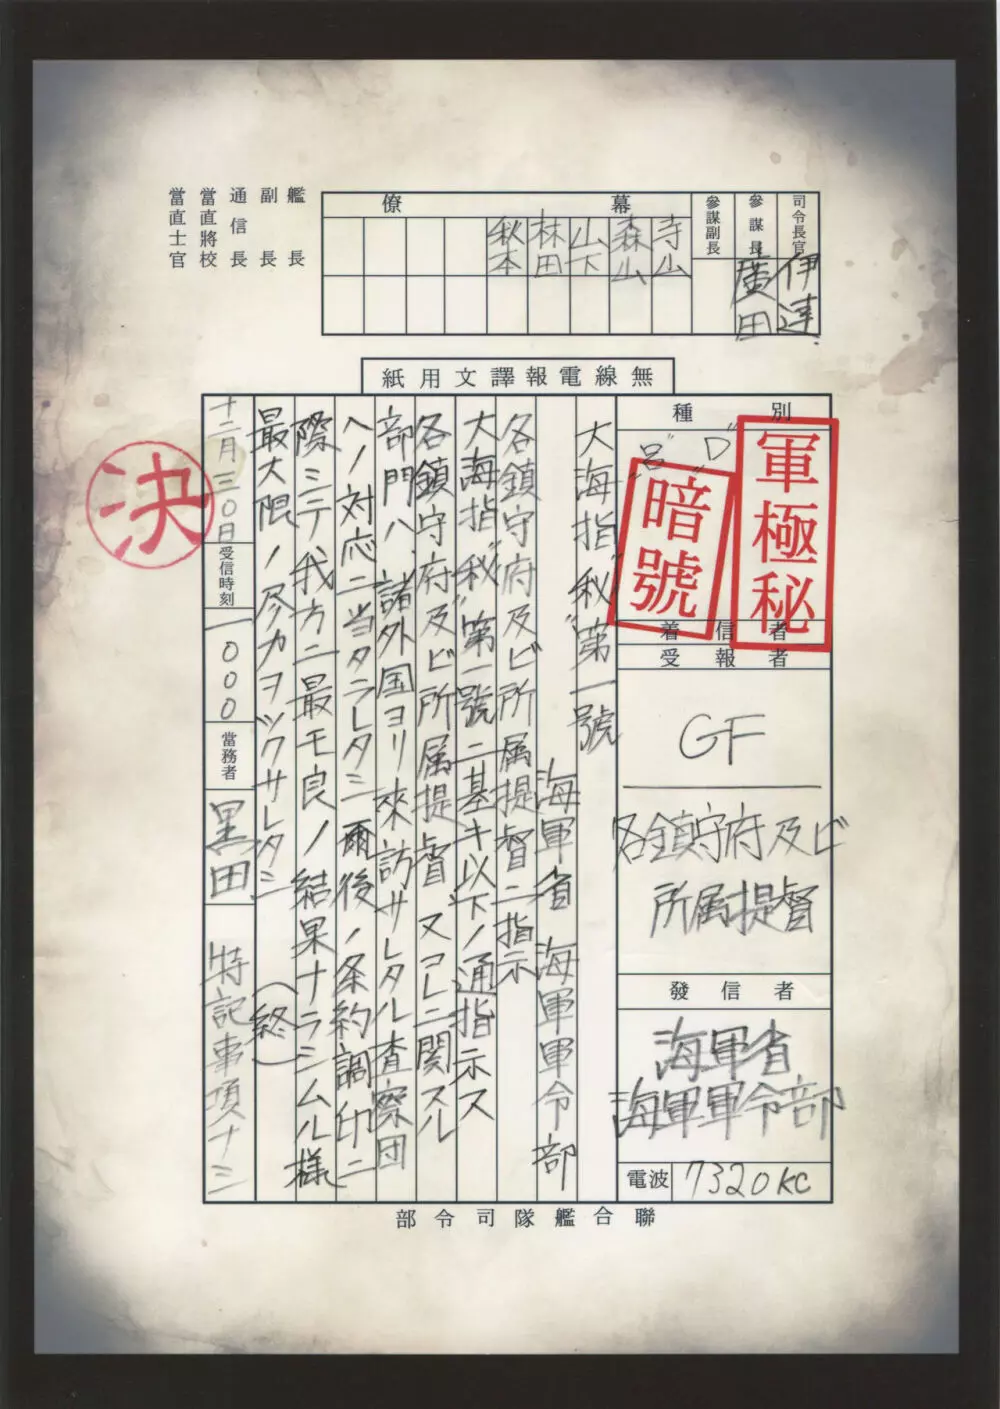 司令長官
伊達
參謀長
廣田
參謀副長
幕僚
寺山
森山
山下
林田
秋本
艦長
副長
通信長
當直將校
當直士官
無線電報譯文用紙
種別
"D"
"呂"
軍極秘
暗號
着信者
受報者
GF
各鎮守府及ビ
所属提督
發信者
海軍省
海軍軍令部
電波
7320KC
大海指"秘"第一號
海軍省 海軍軍令部
各鎮守府及ビ所属提督ニ指示
大海指"秘"第一號ニ基キ以下ノ通指示ス
各鎮守府及ビ所属提督、又コレニ関スル
部門ハ、諸外国ヨリ來訪サレタル査察団
ヘノ対応ニ当タラレタシ 爾後ノ条約調印ニ
際シテ我方ニ最モ良ノ結果ナラシムル様
最大限ノ尽力ヲツクサレタシ (終)
十二月三〇日
受信時刻
一〇〇〇
當務者
黒田
特記事項ナシ
決
聯合艦隊司令部